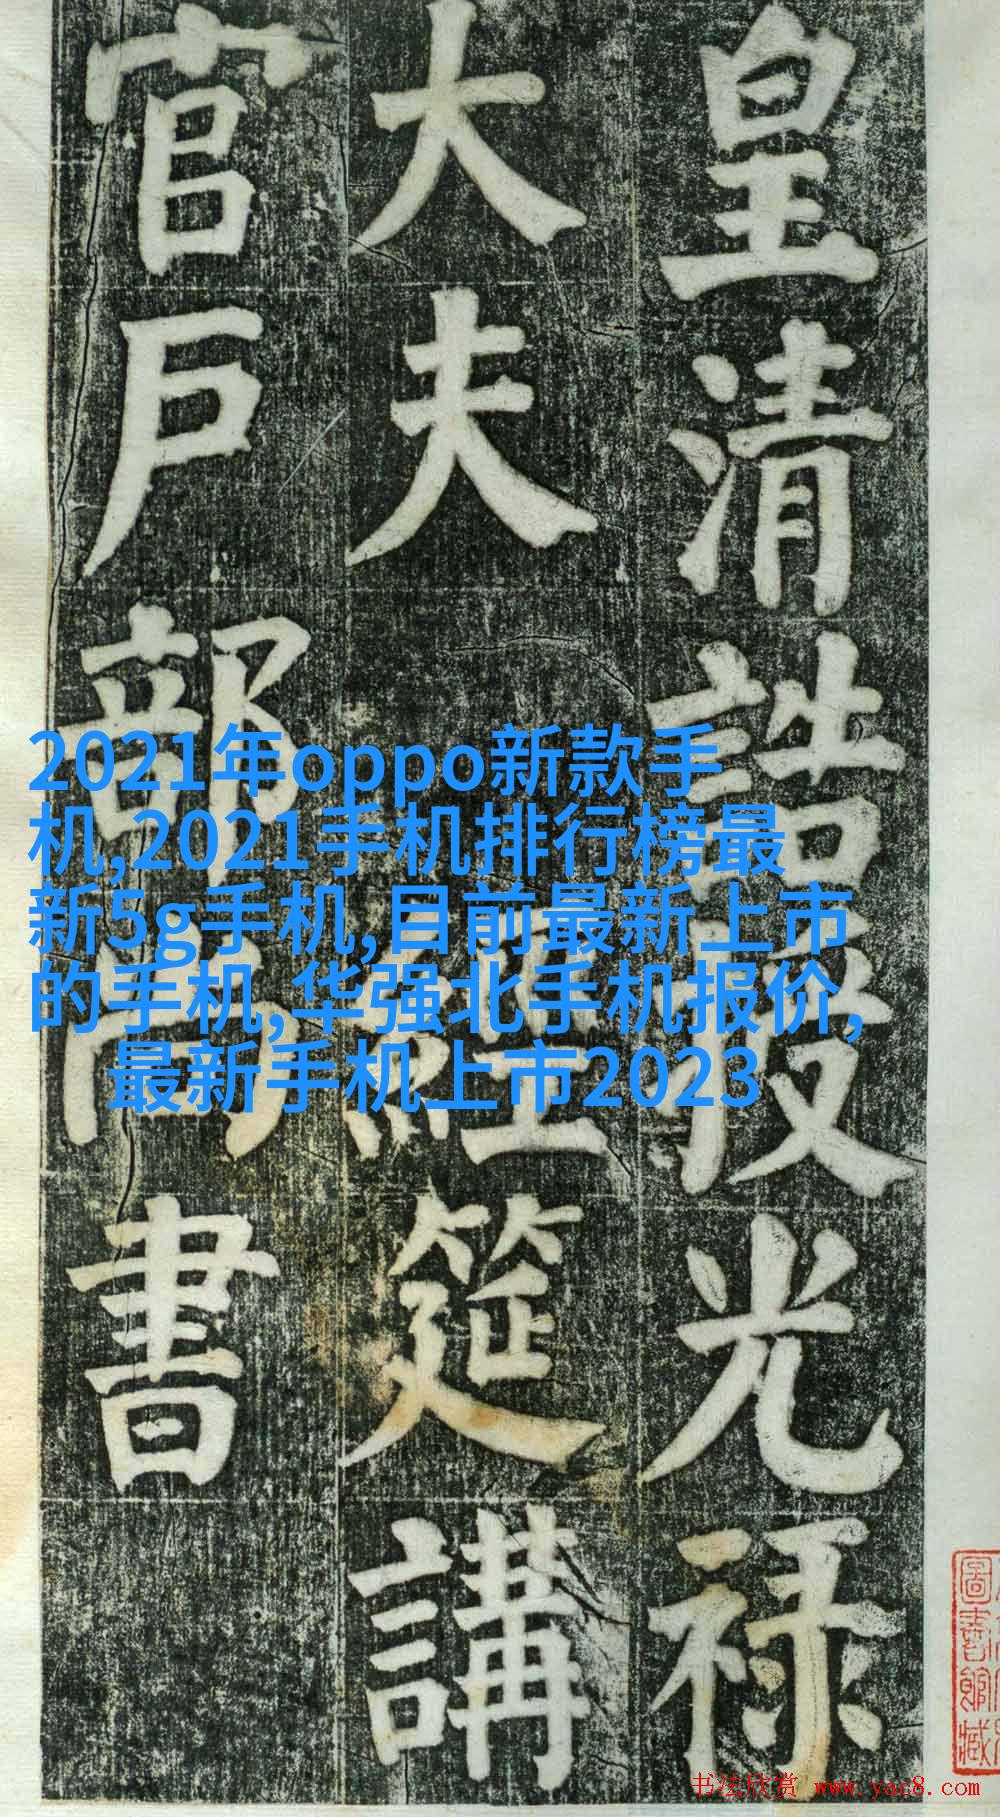 皇清誥授光禄
大夫 經筵講
官戶部尚書
2021年oppo新款手
机,2021手机排行榜最
新5g手机,目前最新上市
的手机,华强北手机报价,
最新手机上市2023
圖書館藏
书法欣赏 www.yac8.com